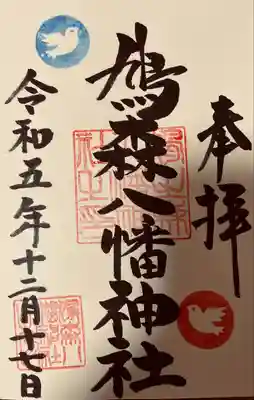 奉拝
鳩森八幡神社
令和五年十二月十七日